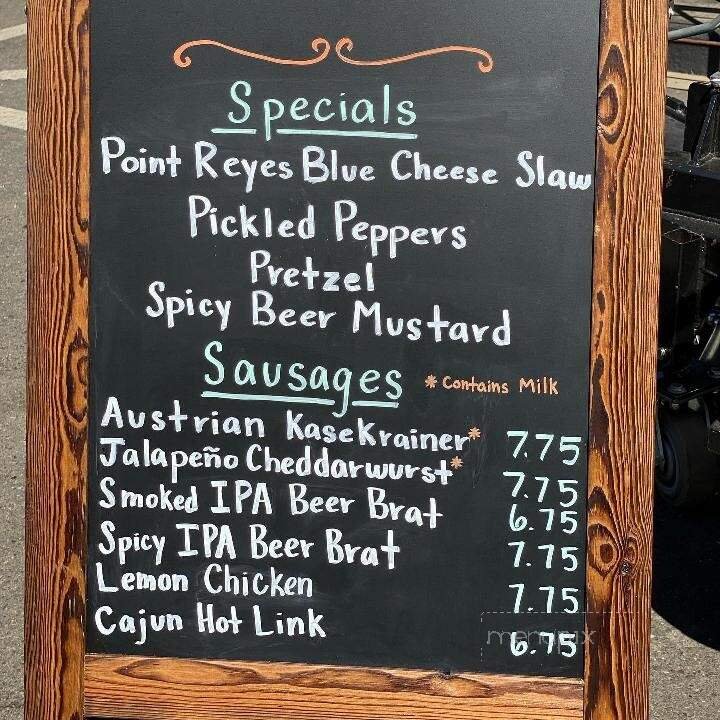 Specials
Point Reyes Blue Cheese Slaw
Pickled Peppers
Pretzel
Spicy Beer Mustard
Sausages *Contains Milk
Austrian KaseKrainer* 7.75
Jalapeño Cheddarwurst* 7.75
Smoked IPA Beer Brat 6.75
Spicy IPA Beer Brat 7.75
Lemon Chicken 7.75
Cajun Hot Link 6.75